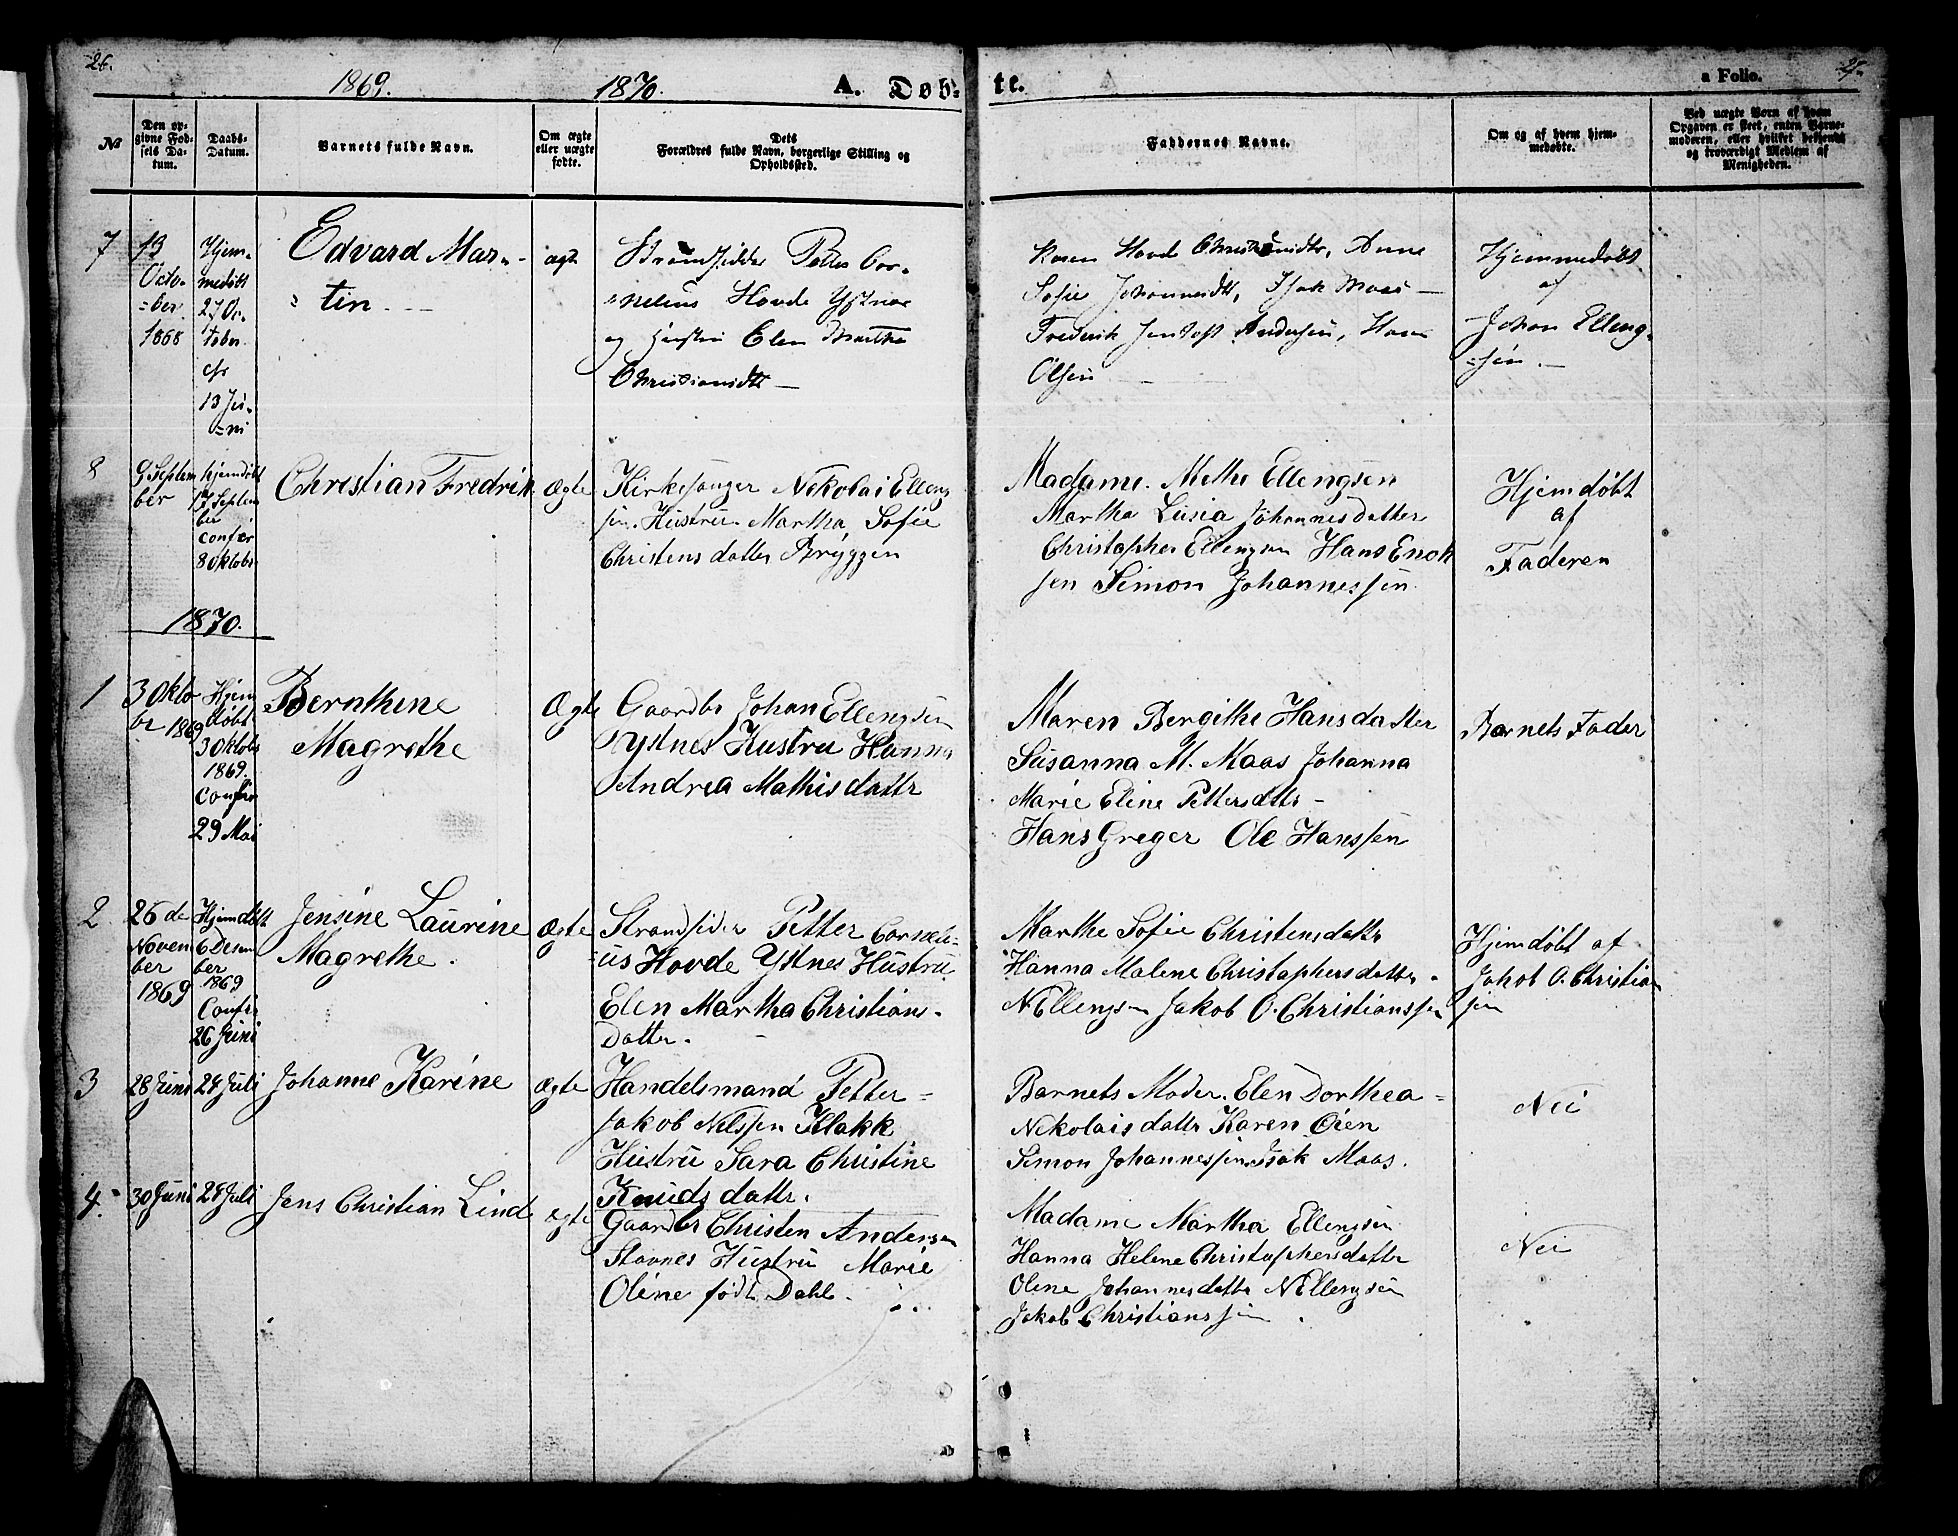 26.
1869.
1870.
A. Døb-
te.
a Folio.
№
Den op-
givne Fød-
sels Da-
tum.
Daabs-
Datum.
Barnets fulde Navn.
Om ægte
eller uægte
fødte.
Dets
Forældres fulde Navn, borgerlige Stilling og
Opholdssted.
Faddernes Navne.
Om og af hvem hjem-
medøbte.
Ved uægte Børn af hvem
Opgaven er skeet, enten Barne-
moderen, eller hvilket bekjendt
og troværdigt Medlem af
Menigheden.
7
13
Octo-
=ber
1868
Hjem-
medøbt
27 Oc-
tober
cfr
13 Ju-
=ni
Edvard Mar-
tin
ægte
Strandsidder Petter Cor-
nelius Hovde Ystnæs
og Elen Martha
Christiansdtr
Hovde Christiansdtr, Anne
Sofie Johannesdtr, Isak Maas
Frederik Andersen, Hans
Olsen
Hjemmedøbt
af
Johan Elleng-
=sen
8
9 Septem
ber
hjemdøbt
17 Septem
ber
confir
8 Oktobr
Christian Fredrik
Ægte
Kirkesanger Nekolai Elleng
sen. Hustru. Martha Sofie
Christens datter Bryggen
Madame. Methe Ellengsen
Martha Lusia Johannesdatter
Christopher Ellengsen Hans Enok
sen Simon Johannessen
Hjemdøbt
af
Faderen
1870.
1
3 Okto
br 1869
Hjem
døbt
3 Oktobr
1869.
Confir
29 Mai
Bernthine
Magrethe
Ægte
Gaardbr Johan Ellengsen
Ystnes Hustru Hanna
Andrea Mathisdattr
Maren Bergithe Hansdatter
Susanna M. Maas Johanna
Marie Eline Pettersdttr
Hans Greger Ole Hanssen
Barnets Fader
2
26 de
Noven
ber
1869
Hjemdøbt
6 Desem
ber
1869
Confir
26 Juni
Jensine Laurine
Magrethe.
Ægte
Strandsider Petter Corneli-
us Hovde Ystnes Hustru
Elen Martha Christians-
Datter.
Marthe Sofie Christensdattr
Hanna Malene Christophersdatter
N Ellengsen Jakob O. Christianssen
Hjemdøbt af
Jakob O. Christian
sen
3
28 Juni
24 Juli
Johanne Karine
Ægte
Handelsmand Petter
Jakob Nelssen Klakk
Hustru Sara Christine
Knudsdattr.
Barnets Moder. Elen Dorthea
Nekolaisdattr Karen Øien
Simon Johannessen Isak Maas.
Nei
4.
30 Juni
24 Juli
Jens Christian Lind
ægte
Gaardbr Christen Andersen
Stavnes Hustru Marie
Oline født Dahl.
Madame Martha Ellengsen
Hanna Helene Christophersdattr
Oline Johannesdattr N Ellengsen
Jakob Christianssen
Nei